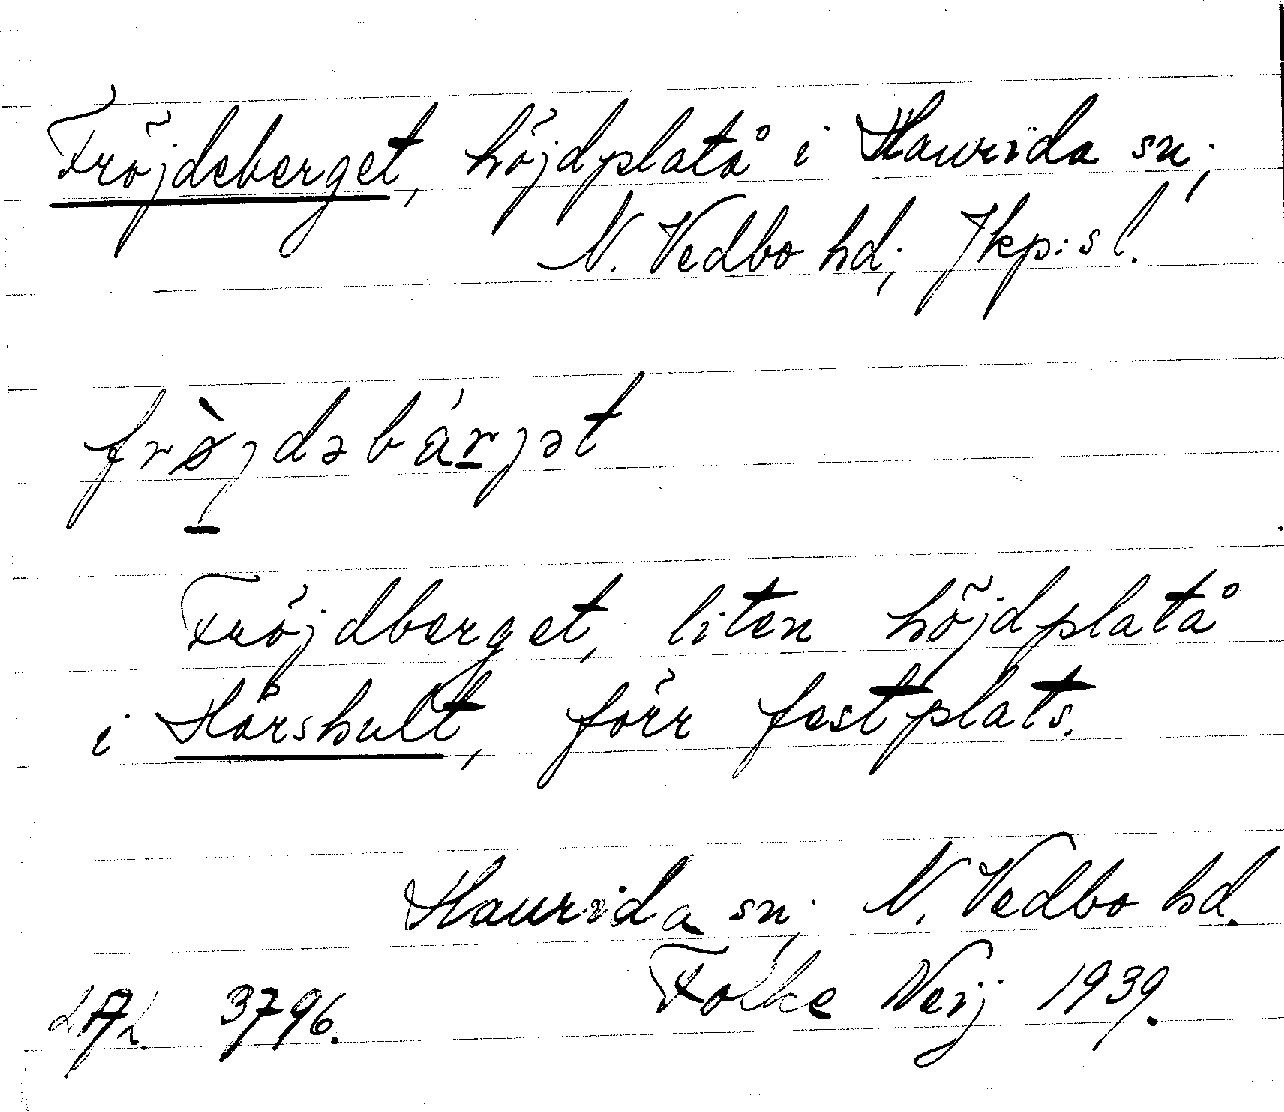 Fröjdeberget, höjdplatå i Haurida sn;
N. Vedbo hd; Jkp:s l.
frø̀jdəbárjət
Fröjdberget, liten höjdplatå
i Hårshult, förr festplats.
Haurida sn; N. Vedbo hd.
Folke Neij 1939.
LAL 3796.